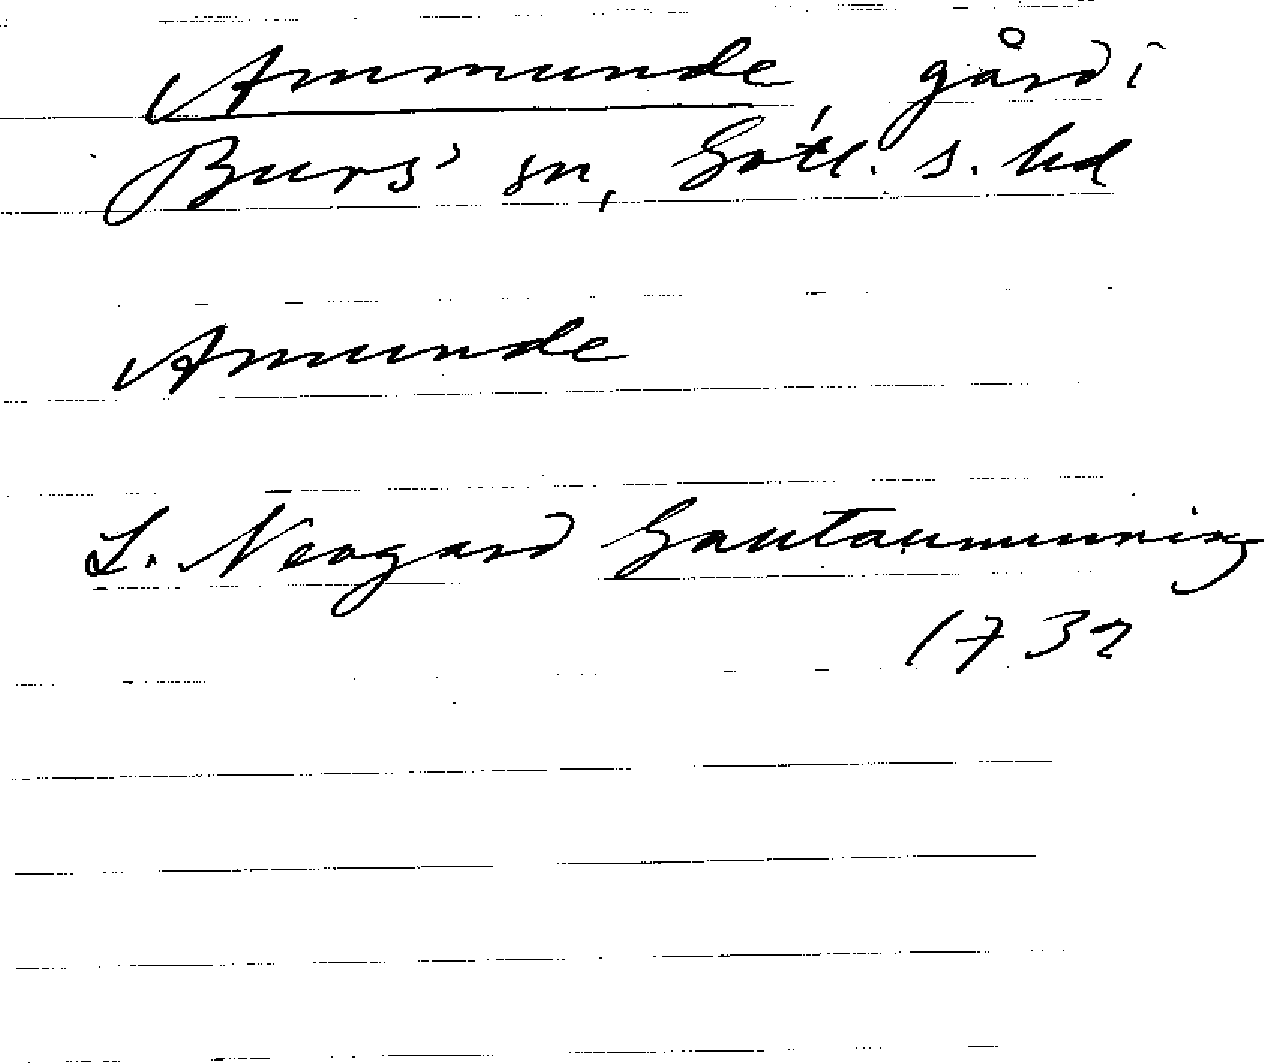 Ammunde, gård i
Burs' sn, Gotl. s. hd
Amunde
L. Neogard Gautauminning
1732